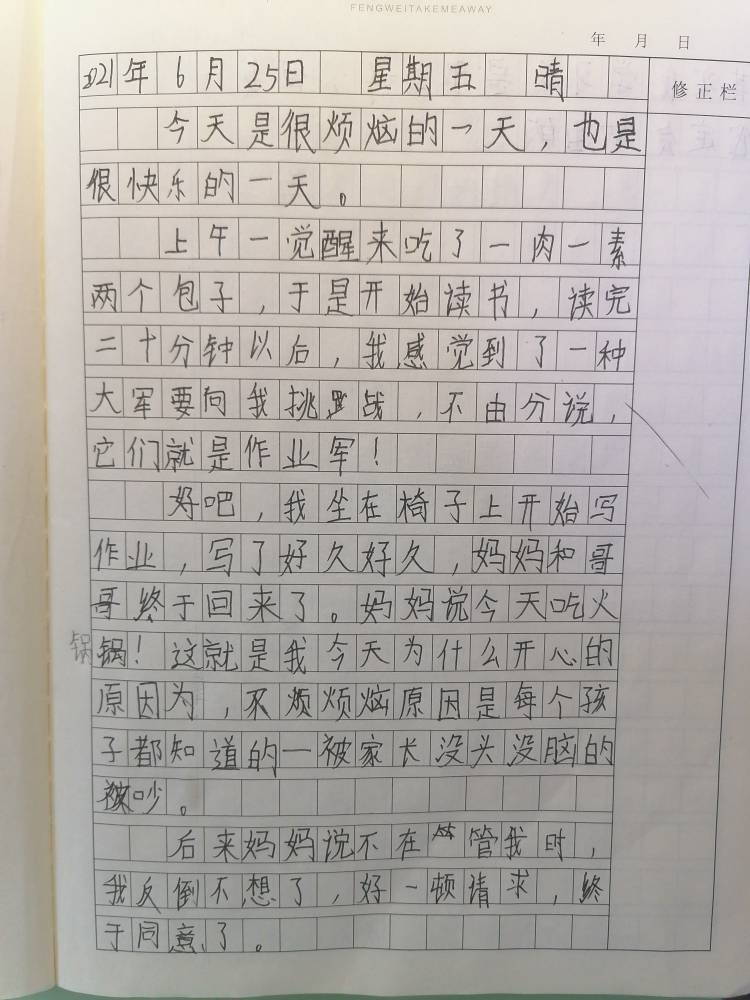 FENGWEITAKEMEAWAY
年 月 日
2021年6月25日 星期五 晴
修正栏
今天是很烦恼的一天，也是
很快乐的一天。
上午一觉醒来吃了一肉一素
两个包子，于是开始读书，读完
二十分钟以后，我感觉到了一种
大军要向我挑战，不由分说，
它们就是作业军！
好吧，我坐在椅子上开始写
作业，写了好久好久，妈妈和哥
哥终于回来了。妈妈说今天吃火
锅
锅！这就是我今天为什么开心的
原因为，不烦烦恼原因是每个孩
子都知道的一被家长没头没脑的
被吵。
后来妈妈说不在管我时，
我反倒不想了，好一顿请求，终
于同意了。